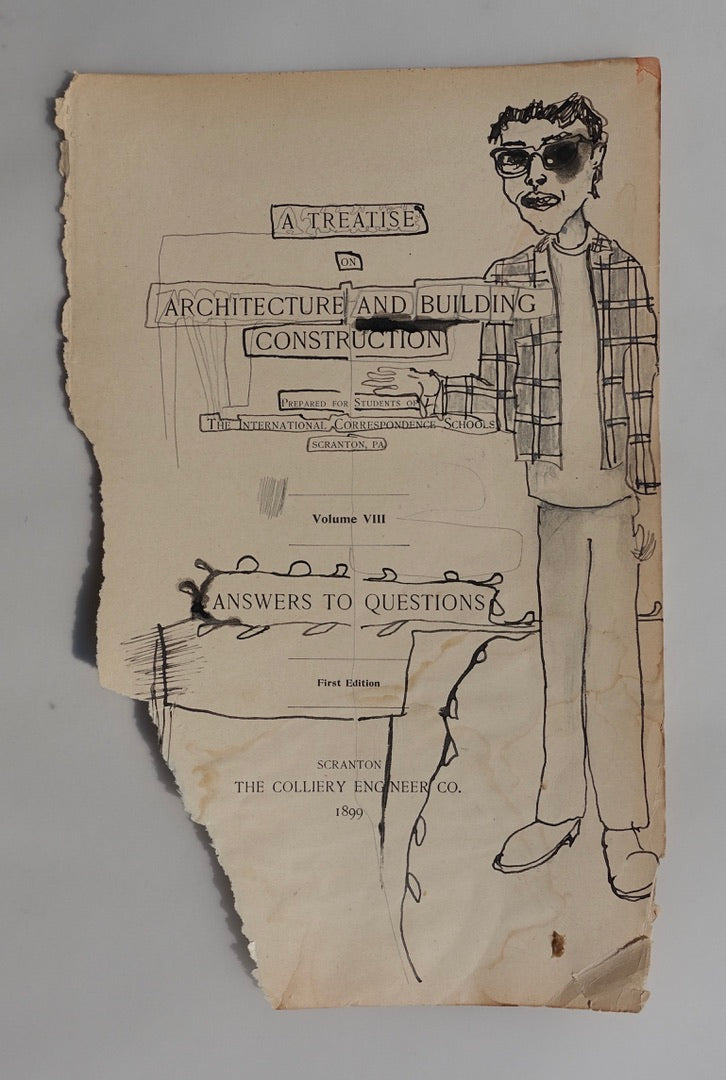 A TREATISE
ON
ARCHITECTURE AND BUILDING
CONSTRUCTION
PREPARED FOR STUDENTS OF
THE INTERNATIONAL CORRESPONDENCE SCHOOLS
SCRANTON, PA.
Volume VIII
ANSWERS TO QUESTIONS
First Edition
SCRANTON
THE COLLIERY ENGINEER CO.
1899